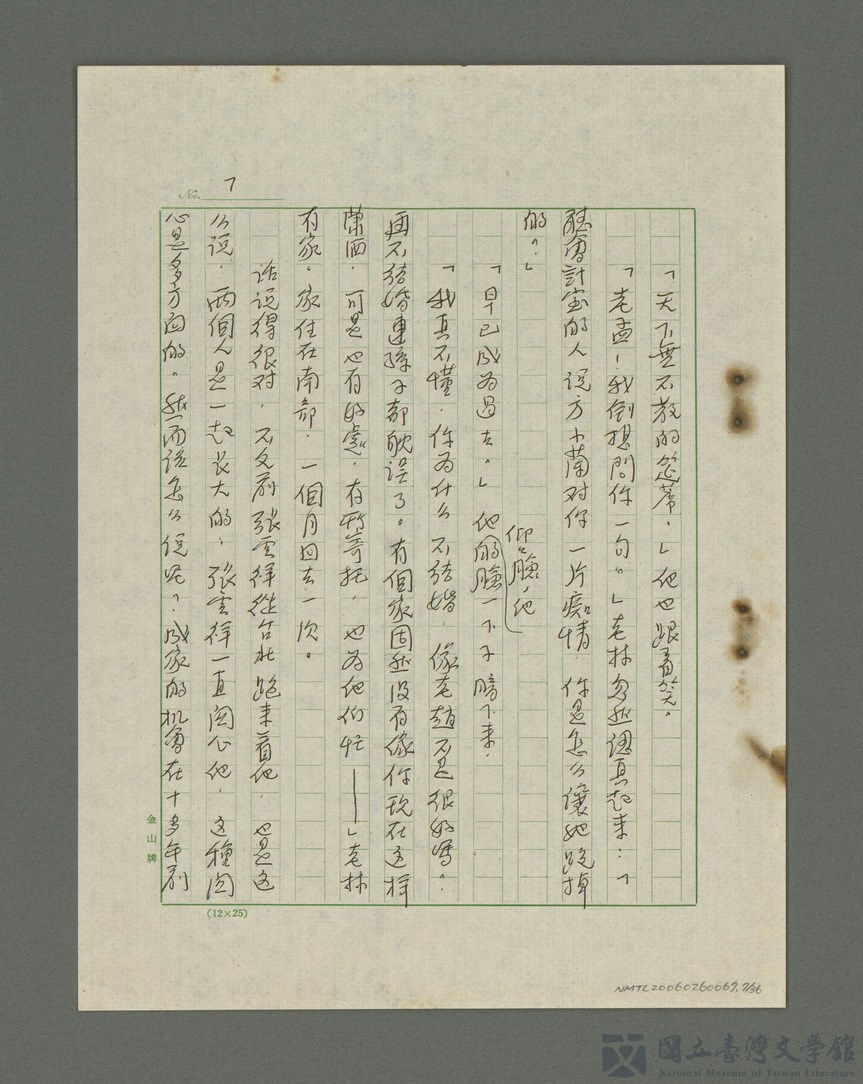 No. 7
「天下無不散的筵蓆。」他也跟着笑。
「老孟！我倒想問你一句。」老林忽然認真起來：「
聽會計室的人說方小蘭对你一片癡情，你是怎么讓她跑掉
的？」
「早已成為過去。」他的臉一下子暗下來，
仰臉，他
「我真不懂，你為什么不結婚，像老趙不是很好嗎。？
再不結婚連孫子都耽誤了。有個家固然沒有像你現在這样
東西，可是也有好處，有所寄托，也為他们忙——」老林
有家。家住在南部，一個月回去一次。
話說得很对，不久前張雲祥從台北跑来看他，也是这
么說，两個人是一起长大的，張雲祥一直関心他，这種関
心是多方面的。然而該怎么說呢？成家的机會在十多年前
金山牌
(12×25)
NMTL20060260069.7/36
國立臺灣文學館
National Museum of Taiwan Literature